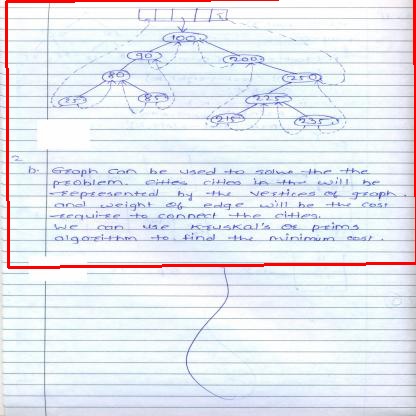 100
90
200
80
250
85
225
215
235
2
b. Graph can be used to solve the the
problem. cities cities in the will be
represented by the vertices of graph.
and weight of edge will be the cost
require to connect the cities.
We can use Kruskal's or prims
algorithm to find the minimum cost.